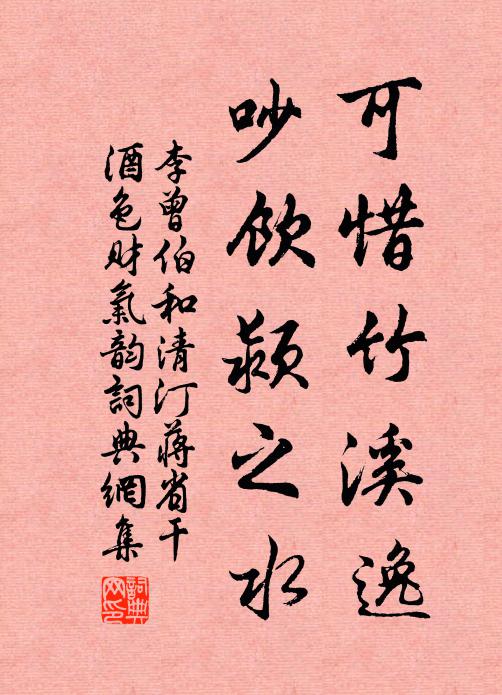 可惜竹溪逸
吵飲潁之水
李曾伯和清汀蔣省干
酒色財氣韵詞典網集
詞典網印